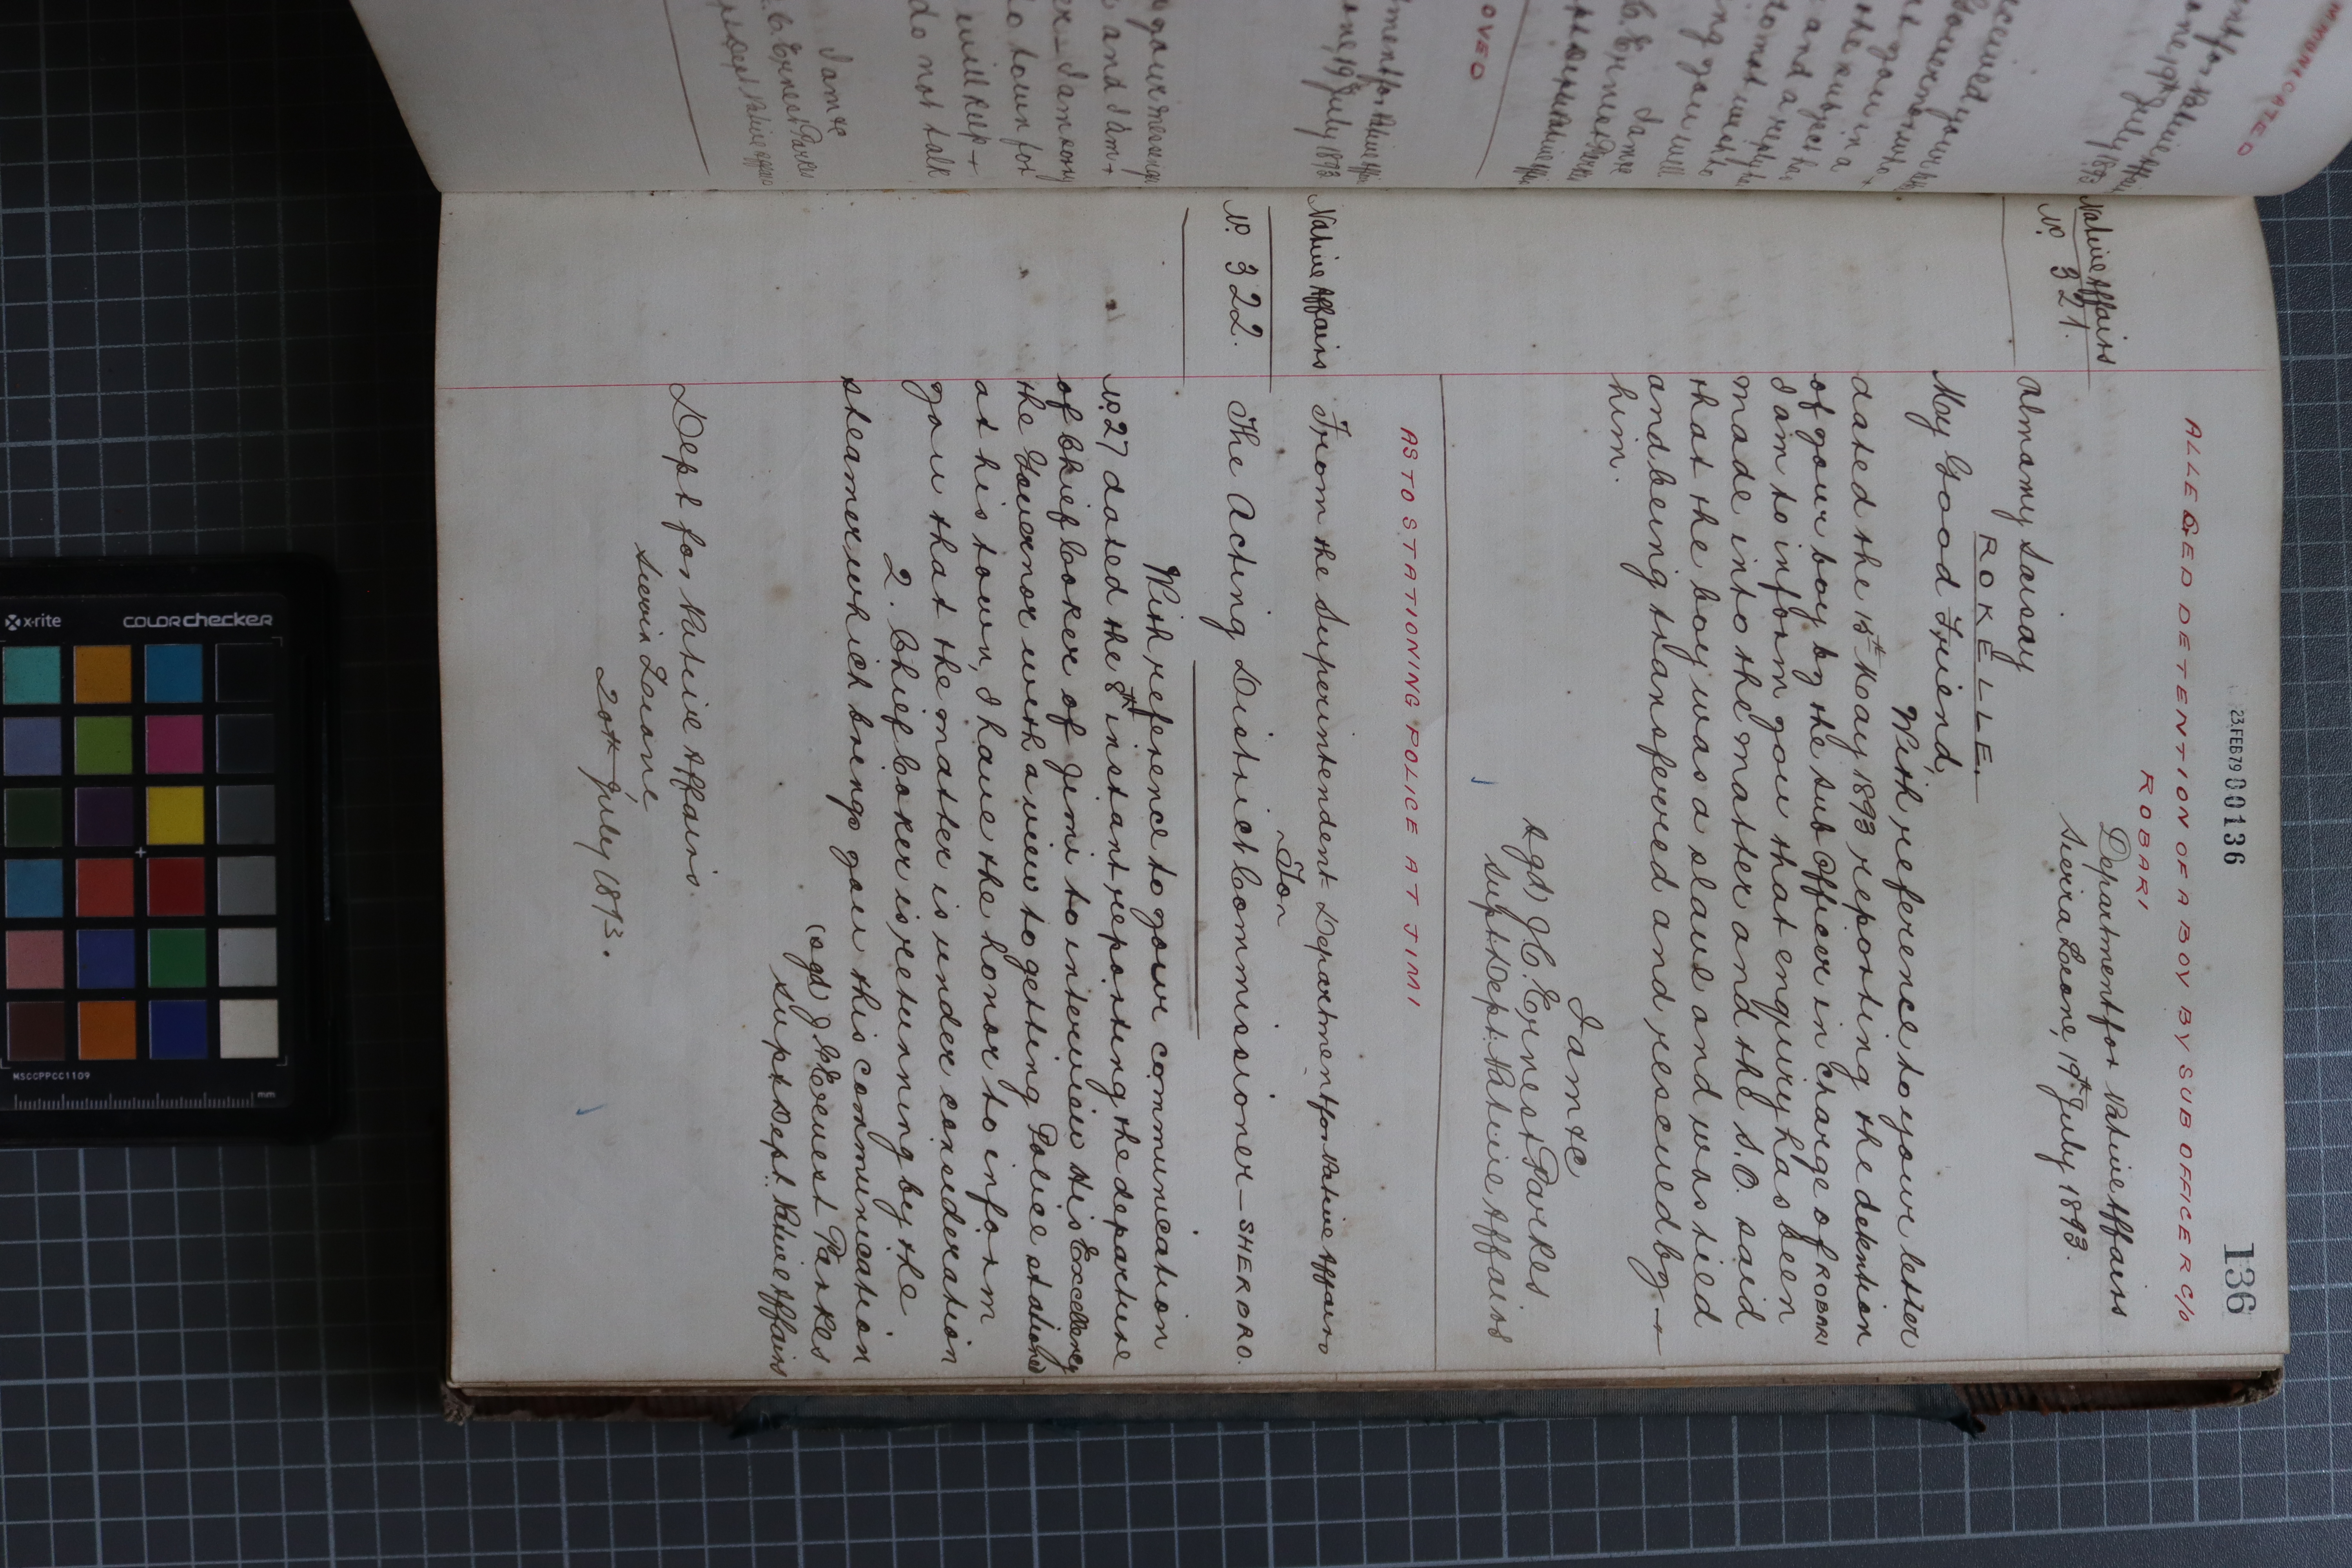 23.FEB79 00136
136
ALLEGED DETENTION OF A BOY BY SUB OFFICER C/o
ROBARI
Native Affairs
No. 321.
Department for Native Affairs
Sierra Leone, 19th July 1893.
Almamy Saisay
ROKELLE.
My Good Friend,
With reference to your letter
dated the 15th May 1893 reporting the detention
of your boy by the Sub Officer in charge of ROBARI
I am to inform you that enquiry has been
made into the matter and the S.O. said
that the boy was a slave and was tied
and being transferred and rescued by
him.
I am &c
sgd) J.C. Ernest Parkes.
Supt: Dept: Native Affairs
AS TO STATIONING POLICE AT JIMI
Native Affairs
No. 322.
From the Superintendent Department for Native Affairs
To
The Acting District Commissioner — SHERBRO.
With reference to your communication
No. 27 dated the 8th instant reporting the departure
of Chief Coker of Jimi to interview His Excellency
the Governor with a view to getting Police stationed
at his town, I have the honor to inform
you that the matter is under consideration
2. Chief Coker is returning by the
steamer which brings you this communication
(sgd) J.C. Ernest Parkes
Supt Dept: Native Affairs
Dept for Native Affairs.
Sierra Leone
20th July 1893.
OVED
ment for Native Affai
one, 19th July 1893
your messenge
and I am
I am sorry
to town for
will keep
do not talk
I am &c
C. Ernest Parkes
Dept Native Affairs
x-rite
COLORchecker
MSCCPPCC1109
mm